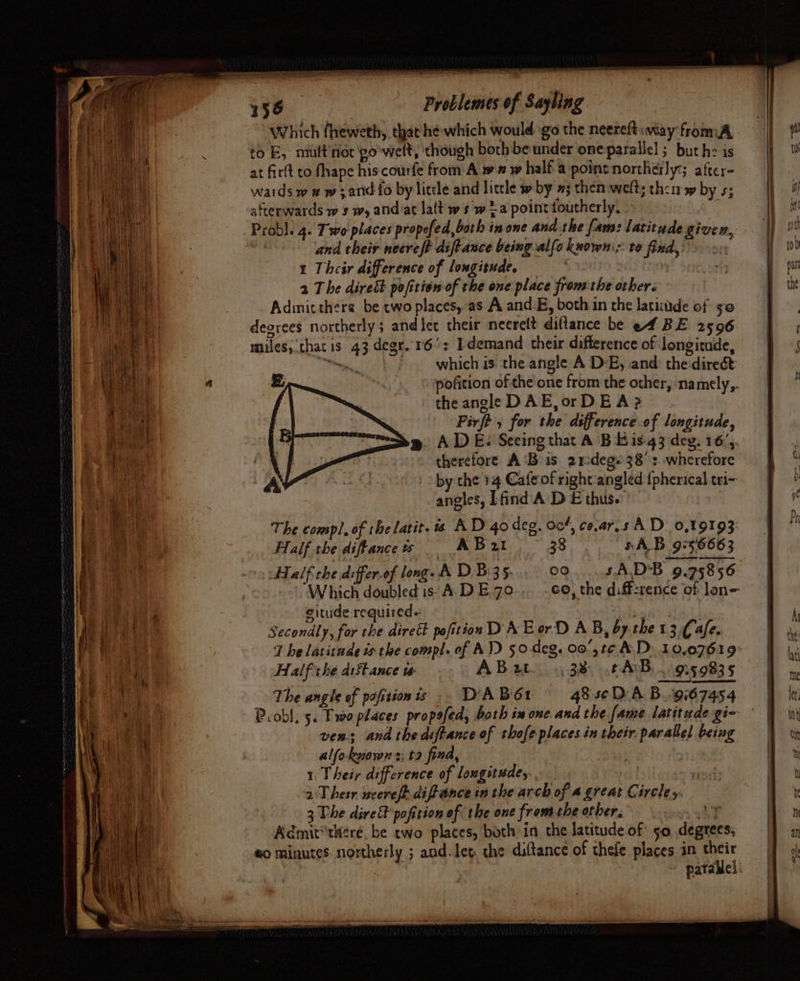 156 Problemes of Sayling
Which ſheweth, that he which would go the neereſt way from A
to E, muſt not go weſt, though both be under one parallel ; but he is
at firſt to ſhape his courſe from A w n w half a point northerly; after-
wards w n w ; and ſo by little and little w by n; then weſt; then w by s;
afterwards w s w, and at laſt w s w ½ a point ſoutherly.
Probl. 4. Two places propoſed, both in one and the ſame latitude given,
and their neereſt diſtance being alſo known; to find,
1 Their difference of longitude.
2 The direct poſition of the one place from the other.
Admit there be two places, as A and E, both in the latitude of 50
degrees northerly ; and let their neereſt diſtance be A B E 2596
miles, that is 43 degr. 16′: I demand their difference of longitude,
which is the angle A D E, and the direct
poſition of the one from the other, namely,
the angle D A E, or D E A ?
Firſt, for the difference of longitude,
A D E. Seeing that A B E is 43 deg. 16′,
therefore A B is 21 deg. 38′: wherefore
by the 14 Caſe of right angled ſpherical tri-
angles, I find A D E thus.
E
B
D
A
The compl. of the latit. is AD 40 deg. 00′, co.ar. s A D 0.19193
Half the diſtance is A B 21 38 s A B 9.56663
Half the differ. of long. A D B 35 00 s A D B 9.75856
Which doubled is A D E 70 00, the difference of lon-
gitude required.
Secondly, for the direct poſition D A E or D A B, by the 13 Caſe.
The latitude is the compl. of A D 50 deg. 00′, tc A D 10.07619
Half the diſtance is A B 21 38 t A B 9.59835
The angle of poſition is D A B 61 48 sc D A B 9.67454
Probl. 5. Two places propoſed, both in one and the ſame latitude gi-
ven; and the diſtance of thoſe places in their parallel being
alſo known : to find,
1 Their difference of longitude,
2 Their neereſt diſtance in the arch of a great Circle,
3 The direct poſition of the one from the other.
Admit there be two places, both in the latitude of 50 degrees,
00 minutes northerly ; and let the diſtance of theſe places in their
parallel